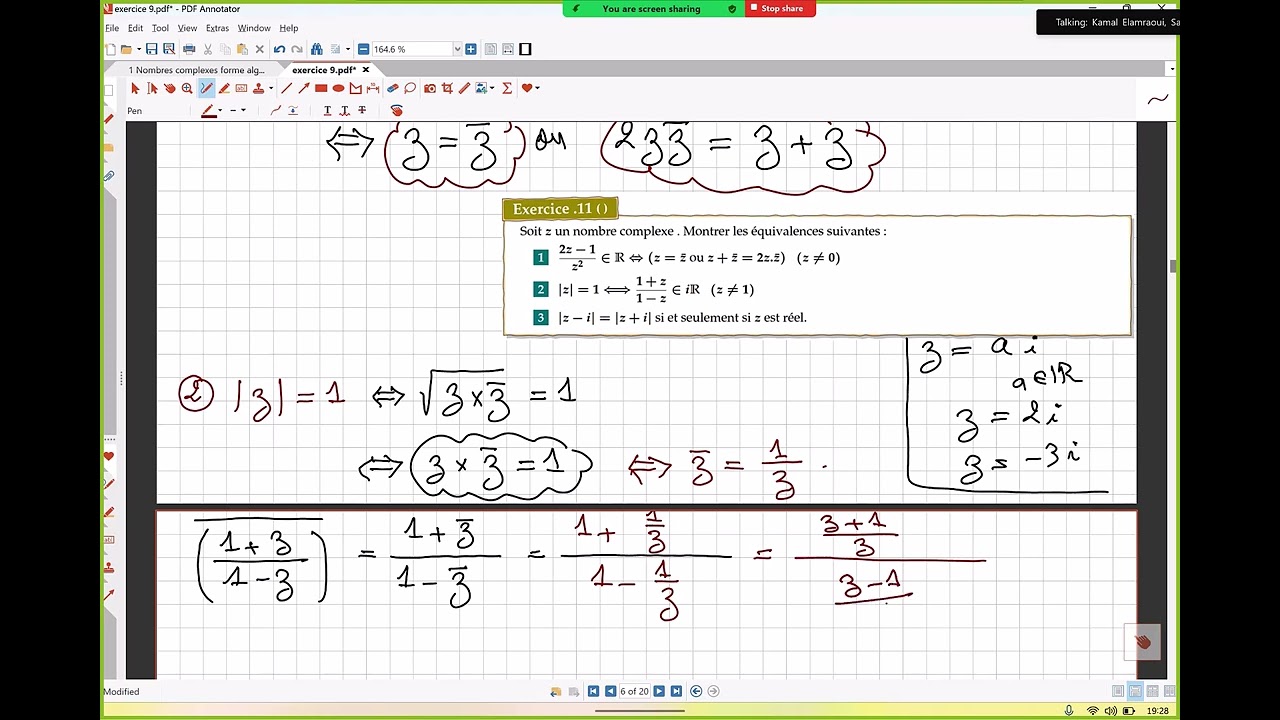 exercice 9.pdf* - PDF Annotator
You are screen sharing
Stop share
Talking: Kamal Elamraoui, Sa
File Edit Tool View Extras Window Help
164.6 %
1 Nombres complexes forme alg... exercice 9.pdf*
Pen
⇔ z = z̄ ou 2zz̄ = z + z̄
Exercice .11 ()
Soit z un nombre complexe . Montrer les équivalences suivantes :
1 (2z − 1)/z² ∈ ℝ ⇔ (z = z̄ ou z + z̄ = 2z.z̄) (z ≠ 0)
2 |z| = 1 ⟺ (1 + z)/(1 − z) ∈ iℝ (z ≠ 1)
3 |z − i| = |z + i| si et seulement si z est réel.
z = a i
a ∈ ℝ
z = 2i
z = -3i
② |z| = 1 ⇔ √(z × z̄) = 1
⇔ z × z̄ = 1 ⇔ z̄ = 1/z .
\overline{((1 + z)/(1 − z))} = (1 + z̄)/(1 − z̄) = (1 + 1/z)/(1 − 1/z) = ((z + 1)/z)/(z − 1
Modified
6 of 20
19:28